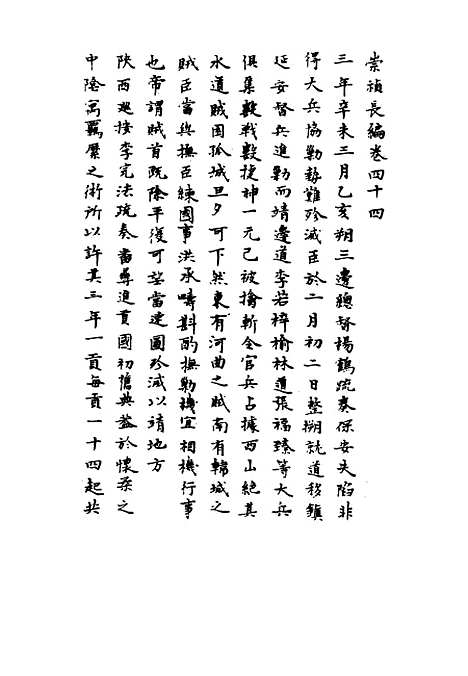 崇禎長編卷四十四
三年辛未三月乙亥朔三邊總督楊鶴疏奏保安失陷非
得大兵協勦勢難殄滅臣於二月初二日整朔就道移鎮
延安督兵進勦而靖邊道李若梓榆林道張福臻等大兵
俱集數戰數捷神一元已被擒斬令官兵占據西山絕其
水道賊困孤城旦夕可下然東有河曲之賊南有韓城之
賊臣當與撫臣練國事洪承疇斟酌撫勦機宜相機行事
也帝謂賊首既除平復可望當速圖殄滅以靖地方
陝西巡按李完法疏奏畨尋進貢國初舊典葢於懷柔之
中隂寓羈縻之術所以許其三年一貢每貢一十四起共